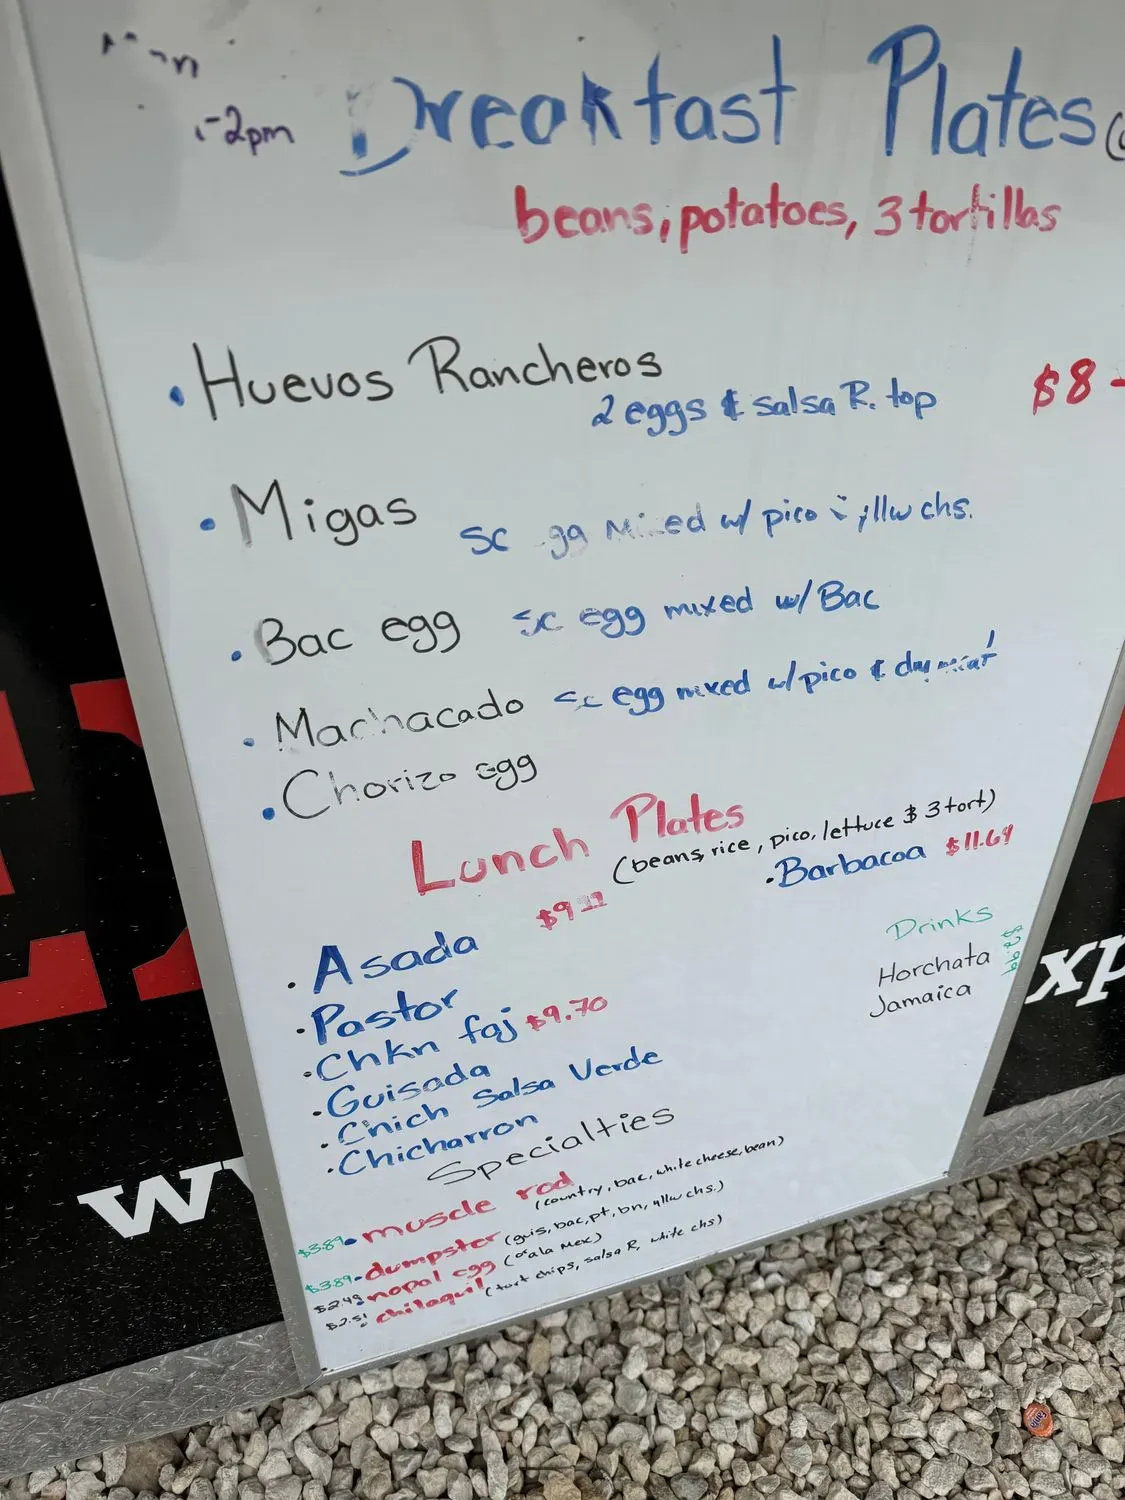 -2pm
Breakfast Plates
beans, potatoes, 3 tortillas
• Huevos Rancheros
2 eggs & salsa R. top
$8
• Migas
sc gg mixed w/ pico yllw chs.
• Bac egg sc egg mixed w/ Bac
• Machacado sc egg mixed w/ pico & dry meat
• Chorizo egg
Lunch Plates
(beans, rice, pico, lettuce & 3 tort)
• Barbacoa $11.69
$9
• Asada
• Pastor
• Chkn faj $9.70
• Guisada
• Chich Salsa Verde
• Chicharron
Drinks
Horchata
Jamaica
Specialties
$3.89 • muscle rod (country, bac, white cheese, bean)
$3.89 - dumpster (guis, bac, pt, bn, yllw chs.)
$2.49 nopal egg (o a la Mex)
$2.51 chilaquil (tort chips, salsa R, white chs)
xp
w
Fanta